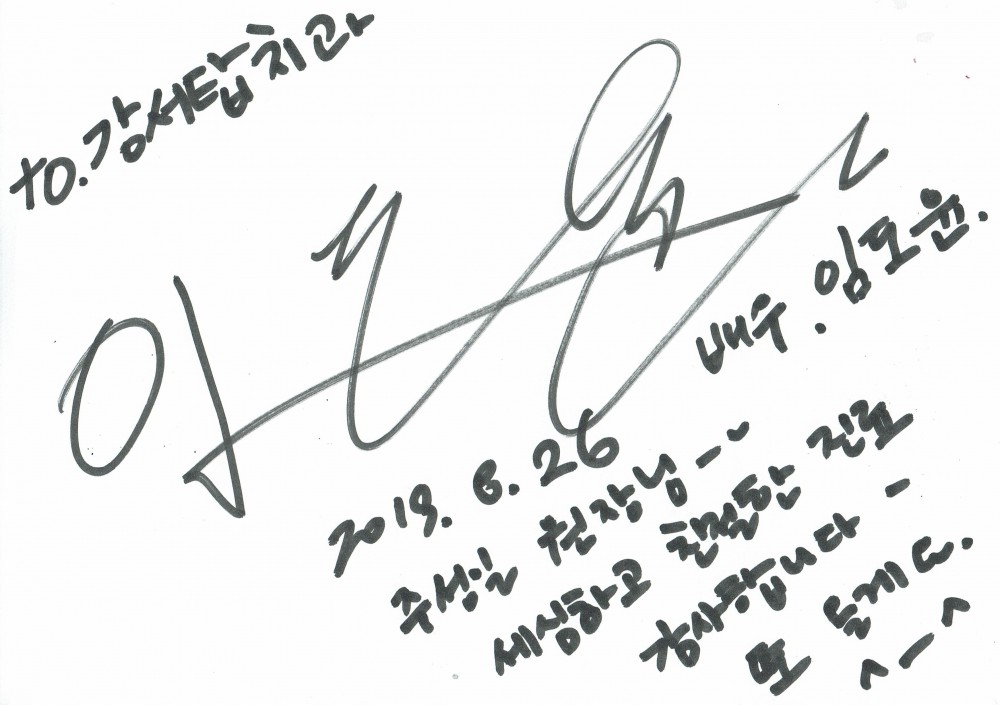 to. 강서탑치과
배우. 임호윤.
2019. 6. 26
주성일 원장님 ~
세심하고 친절한 진료
감사합니다 -
또 올게요.
^-^